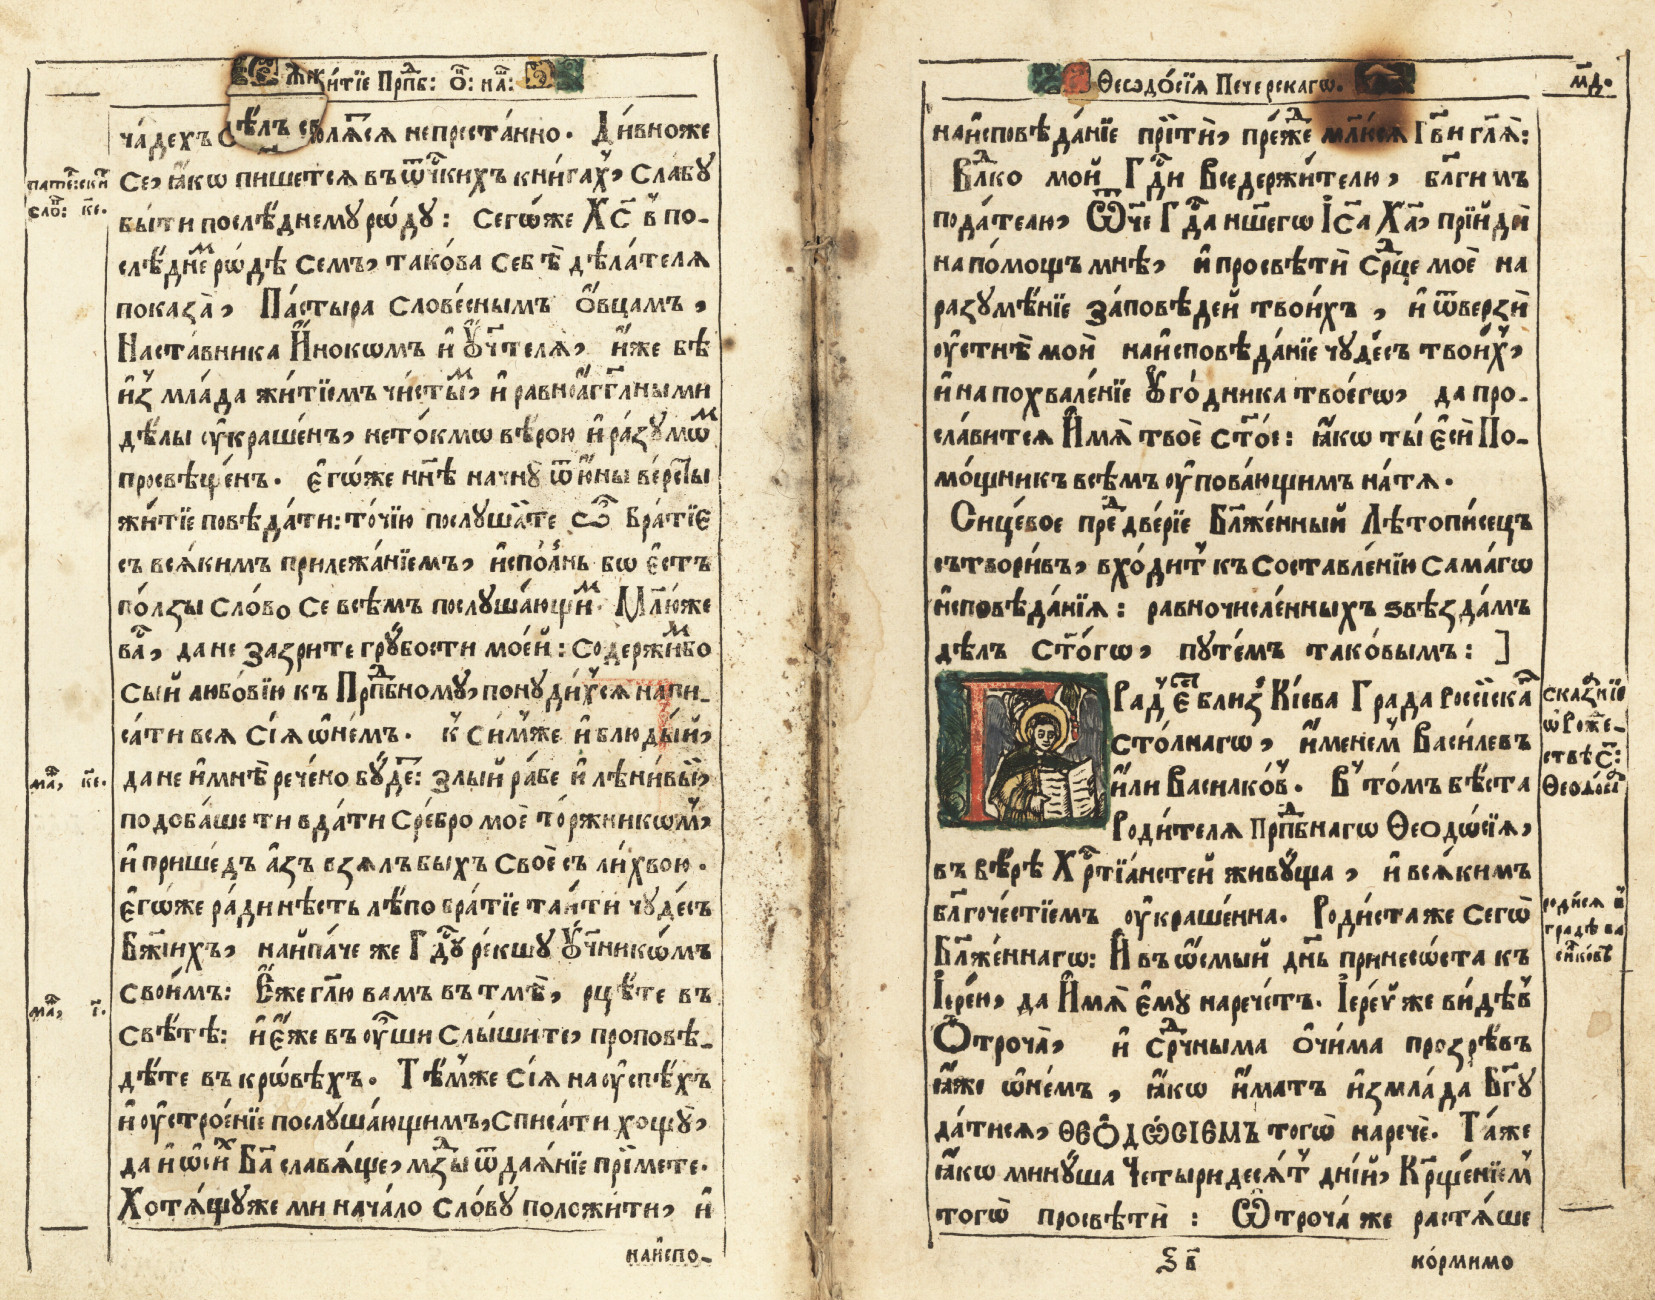 Житїе Прпⷣб: Оц҃: на҃ш:
чадехъ съ
лѧ́сѧ непреста́нно. Ди́вноже
патерⷨскїй
сло: к҃е.
Се, ꙗ҆́кѡ пишетсѧ въ ѿче҃скихъ кни́гахъ, Сла́бꙋ
бы́ти послѣ́днемꙋ рѡ́дꙋ: Сегѡ́же Хс҃ в̾ по-
слѣ́днемъ рѡ́дѣ семъ, тако́ва Себѣ̀ дѣ́лателѧ
показа̀, Па́стыра слове́снымъ ѻ҆вцамъ,
Наста́вника И҆́нокѡмъ и҆ Оу҆чт҃елѧ, и҆́же бѣ
и҆з̾ мла́да жи́тїемъ чи́стымъ, и҆ равноа҆гг҃лными
дѣ́лы оу҆краше́нъ, нето́кмѡ вѣ́рою и҆ ра́зꙋмѡмъ
просвѣще́нъ. Є҆гѡ́же нн҃ѣ начнꙋ̀ ѿ ю҆́ны ве́рсты
жи́тїе повѣ́дати: то́чїю послꙋша̀йте Ѽ Бра́тїе
съ всѧ́кимъ прилежа́нїемъ, и҆спо́лнь бѡ є҆стъ
по́лзы Сло́во Се всѣ́мъ послꙋша́ющимъ. Мл҃ю́же
ва҃съ, да не зазрите грꙋ́бости мое́й: Содержи́мбо
Сый любо́вїю къ Прпⷣбномꙋ, понꙋди́хсѧ напи-
са́ти всѧ Сїѧ̀ ѡ҆не́мъ. к̾ Си́мже и҆ блюды́й,
ма҃т, к҃е.
да не и҆ мнѣ̀ рече́но бꙋ́детъ: злы́й ра́бе и҆ лѣни́вый,
подоба́ше ти вда́ти Сре́бро моѐ то́ржникѡмъ,
и҆ прише́дъ а҆́зъ взѧ́лъ быхъ Своѐ съ ли́хвою.
Є҆гѡ́же ра́ди нѣ́сть лѣ́по бра́тїе таи́ти чꙋде́съ
Бж҃їихъ, наипа́че же Гдⷭ҇ꙋ ре́кшꙋ Оу҆чн҃икѡ́мъ
свои́мъ: Є҆́же гл҃ю вамъ въ тмѣ̀, рцѣ́те въ
ма҃т, і҃.
свѣ́тѣ: и҆ є҆́же въ оу҆́ши Слы́шите, проповѣ́-
дѣте въ кро́вѣхъ. Тѣ́мже Сїѧ̀ на оу҆спѣ́хъ
и҆ оу҆строе́нїе послꙋша́ющимъ, Списа́ти хощꙋ̀,
да и҆ ѡ҆ си́хъ Бг҃а славѧ́ще, мздⷣы ѿдаѧ́нїе прїи́мете.
Хотѧ́щꙋже ми нача́ло Сло́вꙋ положи́ти, и҆
наи҆спо-
Ѳеодо́сїѧ Пече́рскагѡ.
м҃д.
наи҆сповѣ́данїе прїйтѝ, пре́жде мл҃исѧ Гв҃и гл҃ѧ:
Влⷣко мой Гдⷭ҇и Вседержи́телю, бл҃ги́мъ
пода́телю, Ѿче Гдⷭ҇а нш҃егѡ І҆с҃а Ха҃, прїйдѝ
на по́мощъ мнѣ̀, и҆ просвѣтѝ Срⷣце моѐ на
разꙋмѣ́нїе за́повѣдей твои́хъ, и҆ ѿверзѝ
оу҆стнѣ̀ моѝ наи҆сповѣ́данїе чꙋде́съ твои́хъ,
и҆ на похвале́нїе Оу҆го́дника твоегѡ̀, да про-
сла́витсѧ И҆́мѧ твоѐ ст҃о́е: ꙗ҆́кѡ ты̀ є҆сѝ По-
мо́щникъ всѣ́мъ оу҆пова́ющимъ на тѧ.
Сице́вое предⷣве́рїе Бл҃же́нный Лѣтопи́сецъ
сътвори́въ, вхо́дит̾ къ Составле́нїю Сама́гѡ
и҆сповѣ́данїѧ: равночисле́нныхъ ѕвѣзда́мъ
дѣ́лъ ст҃о́гѡ, пꙋте́мъ тако́вымъ: ]
Градъ Є҆ст҃ близ̾ Кі́ева Града Россійска
Сто́лнагѡ, и҆́менемъ Васи́левъ
и҆́ли Васи́лко́въ. В̾ то́мъ бѣ́ста
Роди́телѧ Прпⷣбнагѡ Ѳеодѡ́сїѧ,
сказа́нїе
ѡ҆ Рожⷣе-
ствѣ С҃:
Ѳеодо́сїа
въ вѣ́рѣ Хрⷭ҇тїа́нстей живꙋ́ща, и҆ всѧ́кимъ
бл҃гоче́стїемъ оу҆краше́нна. Роди́ста же Сегѡ̀
Бл҃же́ннагѡ: И҆ въ ѡ҆смы́й дн҃ь принесѡ́ста къ
роди́сѧ в̾
градѣ ва
си́лковѣ
І҆ере́ю, да И҆́мѧ є҆мꙋ̀ наречетъ. І҆ере́ѵ же ви́дѣв̾
Ѻ҆троча̀, и҆ срⷣчныма ѻ҆чи́ма прозрѣ́въ
ꙗ҆́же ѡ҆не́мъ, ꙗ҆́кѡ и҆́матъ и҆змла́да Бг҃ꙋ
да́тисѧ, ѲЕѺДѠ́СІЕМЪ тогѡ̀ наречѐ. Та́же
ꙗ҆́кѡ минꙋ́ша Четыридесѧ́т̾ дні́й, Крщ҃е́нїем̾
тогѡ̀ просвѣтѝ: Ѿтроча́ же растѧ́ше
ѯ в҃
ко́рмимо